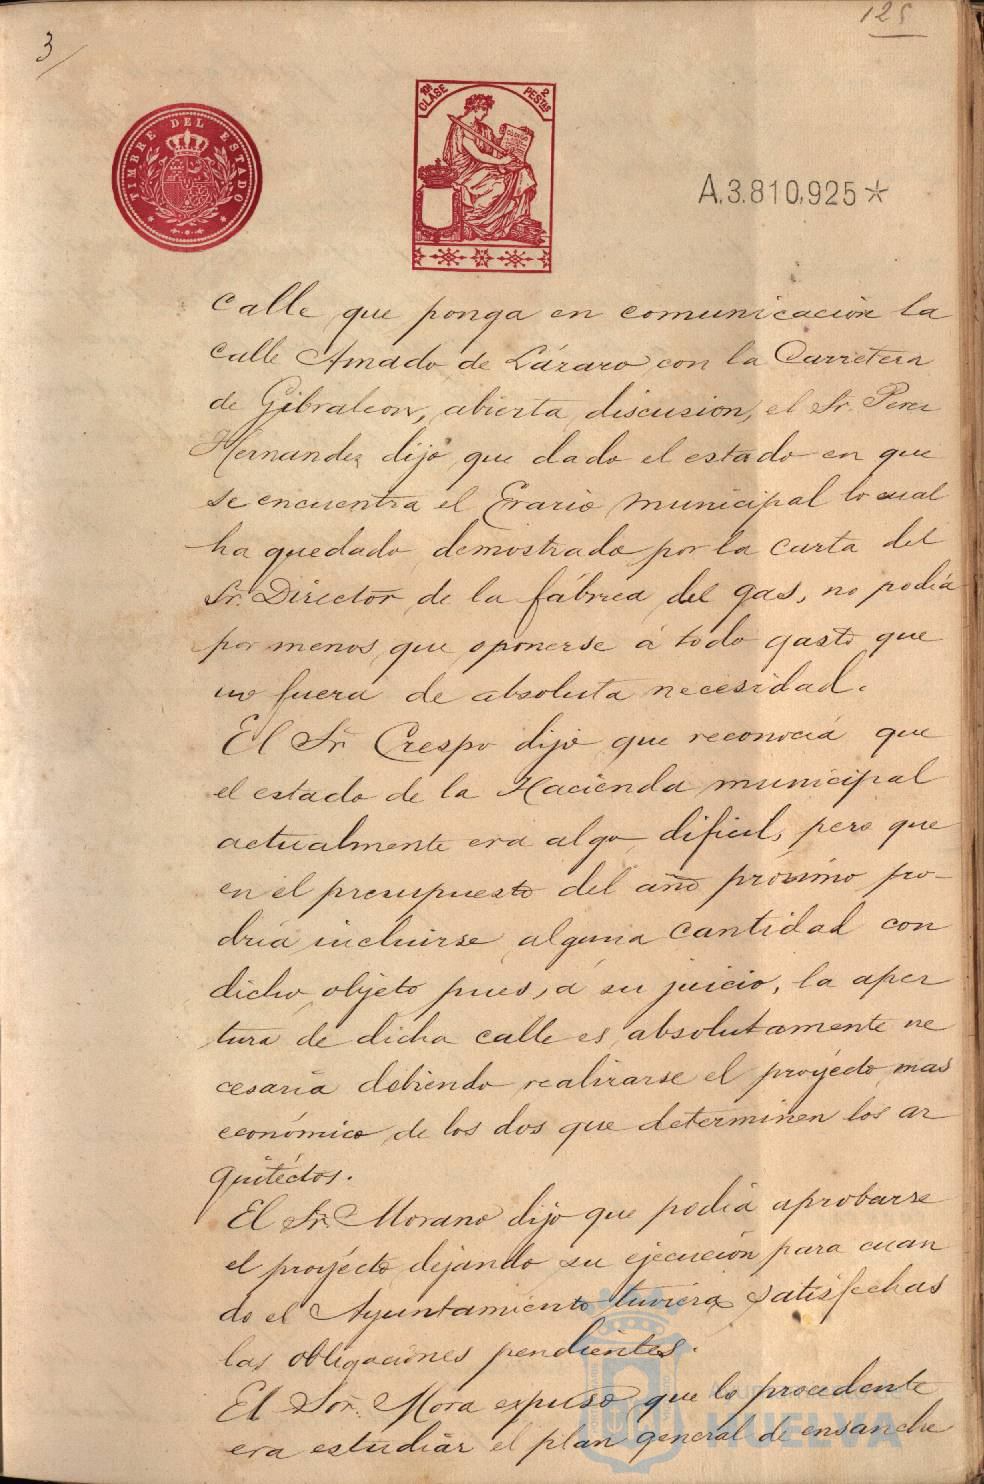 125
3
TIMBRE DEL ESTADO
10ª CLASE
2 PESTAS
A.3.810,925*
calle que ponga en comunicación la
calle Amado de Lázaro con la Carretera
de Gibraleon, abierta discusion, el Sr. Perez
Hernandez dijo que dado el estado en que
se encuentra el Erario municipal lo cual
ha quedado demostrado por la carta del
Sr. Director de la fábrica del gas, no podia
por menos que oponerse á todo gasto que
no fuera de absoluta necesidad.
El Sr. Crespo dijo que reconocia que
el estado de la Hacienda municipal
actualmente era algo dificil, pero que
en el presupuesto del año próximo po-
dria incluirse alguna cantidad con
dicho objeto pues, á su juicio, la aper
tura de dicha calle es absolutamente ne
cesaria debiendo realizarse el proyécto mas
económico de los dos que determinen los ar
quitéctos.
El Sr. Morano dijo que podia aprobarse
el proyécto dejando su ejecución para cuan
do el Ayuntamiento tuviera satisfechas
las obligaciones pendientes.
El Sor. Mora expuso que lo procedente
era estudiar el plan general de ensanche
AYUNTAMIENTO DE
HUELVA